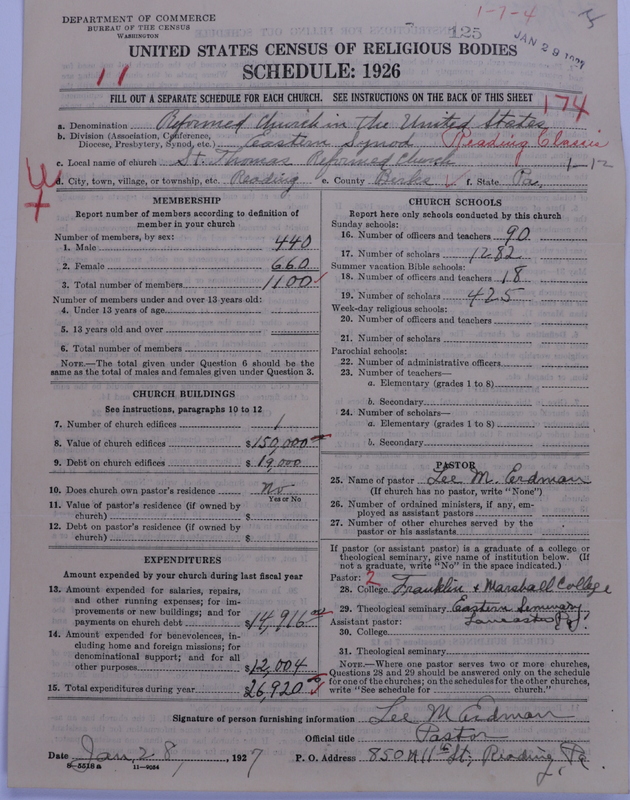 DEPARTMENT OF COMMERCE
BUREAU OF THE CENSUS
WASHINGTON
1-7-4
125
JAN 29 1927
UNITED STATES CENSUS OF RELIGIOUS BODIES
SCHEDULE: 1926
11
FILL OUT A SEPARATE SCHEDULE FOR EACH CHURCH. SEE INSTRUCTIONS ON THE BACK OF THIS SHEET
174
a. Denomination Reformed Church in the United States
b. Division (Association, Conference, Diocese, Presbytery, Synod, etc.) Eastern Synod Reading Classis
c. Local name of church St. Thomas Reformed Church
1-12
d. City, town, village, or township, etc. Reading e. County Berks f. State Pa.
MEMBERSHIP
Report number of members according to definition of member in your church
Number of members, by sex:
1. Male 440
2. Female 660
3. Total number of members 1100
Number of members under and over 13 years old:
4. Under 13 years of age
5. 13 years old and over
6. Total number of members
NOTE.—The total given under Question 6 should be the same as the total of males and females given under Question 3.
CHURCH BUILDINGS
See instructions, paragraphs 10 to 12
7. Number of church edifices 1
8. Value of church edifices $150,000
9. Debt on church edifices $19,000
10. Does church own pastor's residence No
Yes or No
11. Value of pastor's residence (if owned by church) $
12. Debt on pastor's residence (if owned by church) $
EXPENDITURES
Amount expended by your church during last fiscal year
13. Amount expended for salaries, repairs, and other running expenses; for improvements or new buildings; and for payments on church debt $14,916
14. Amount expended for benevolences, including home and foreign missions; for denominational support; and for all other purposes $12,004
15. Total expenditures during year $26,920
CHURCH SCHOOLS
Report here only schools conducted by this church
Sunday schools:
16. Number of officers and teachers 90
17. Number of scholars 1282
Summer vacation Bible schools:
18. Number of officers and teachers 18
19. Number of scholars 425
Week-day religious schools:
20. Number of officers and teachers
21. Number of scholars
Parochial schools:
22. Number of administrative officers
23. Number of teachers—
a. Elementary (grades 1 to 8)
b. Secondary
24. Number of scholars—
a. Elementary (grades 1 to 8)
b. Secondary
PASTOR
25. Name of pastor Lee M. Erdman
(If church has no pastor, write "None")
26. Number of ordained ministers, if any, employed as assistant pastors
27. Number of other churches served by the pastor or his assistants
If pastor (or assistant pastor) is a graduate of a college or theological seminary, give name of institution below. (If not a graduate, write "No" in the space indicated.)
Pastor: 2
28. College Franklin & Marshall College
29. Theological seminary Eastern Seminary
Assistant pastor: Lancaster Pa.
30. College
31. Theological seminary
NOTE.—Where one pastor serves two or more churches, Questions 28 and 29 should be answered only on the schedule for one of the churches; on the schedules for the other churches, write "See schedule for church."
Signature of person furnishing information Lee M Erdman
Official title Pastor
Date Jan. 28, 1927 P. O. Address 850 N 11th St., Reading, Pa.
8-5518 a 11-9054